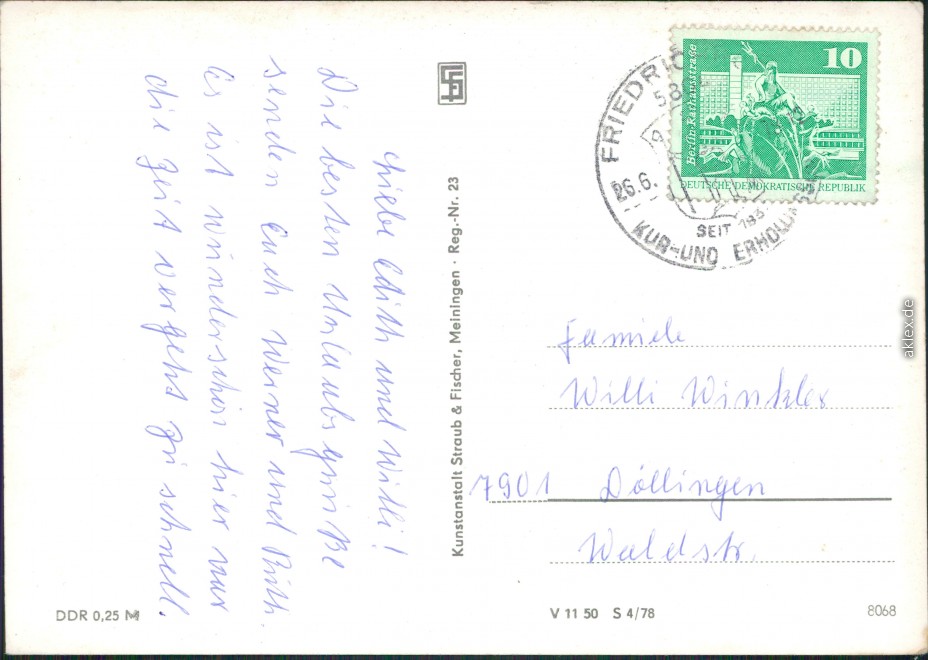 Liebe Edith und Willi!
Die besten Urlaubsgrüße
senden Euch Werner und Ruth.
Es ist wunderschön hier nur
die Zeit vergeht zu schnell.
Kunstanstalt Straub & Fischer, Meiningen · Reg.-Nr. 23
DDR 0,25 M
10
Berlin · Rathausstraße
DEUTSCHE DEMOKRATISCHE REPUBLIK
FRIEDRIC
58
26.6.
SEIT 183
KUR-UND ERHOLUNGS
Familie
Willi Winkler
7901 Döllingen
Waldstr.
V 11 50 S 4/78
8068
aklex.de